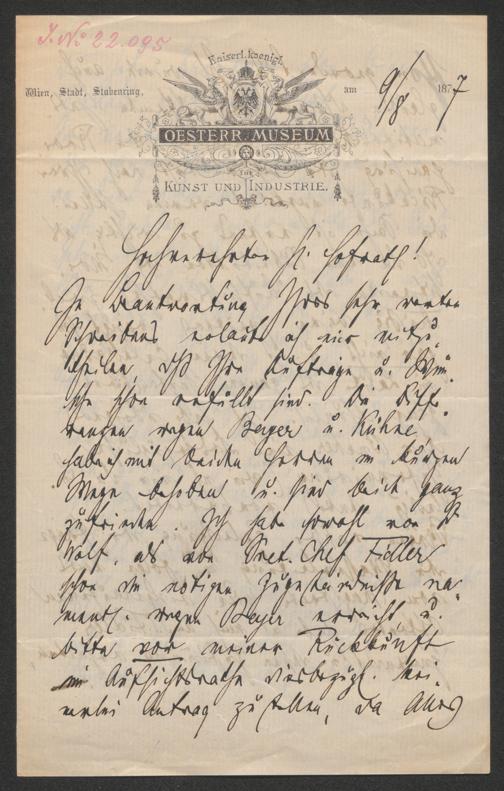 I. No 22.095
Kaiserl. koenigl.
Wien, Stadt, Stubenring.
am 9/8 1877
OESTERR. MUSEUM
FÜR
KUNST UND INDUSTRIE.
Hochverehrter H. Hofrath!
In Beantwortung Ihres sehr werten
Schreibens erlaube ich mir mitzu-
theilen, daß Ihre Aufträge u. Wün-
sche schon erfüllt sind. Die Diffe-
renzen wegen Beyer u. Kühne,
habe ich mit beiden Herren im kurzen
Wege behoben u. sind beide ganz
zufrieden. Ich habe sowohl von
Wolf, als von Sect. Chef Fidler
schon die nötigen Zugeständnisse na-
mentl. wegen Beyer erreicht, u.
bitte vor meiner Rückkunft
im Aufsichtsrathe diesbezügl. kei-
nerlei Antrag zu stellen, da Alles